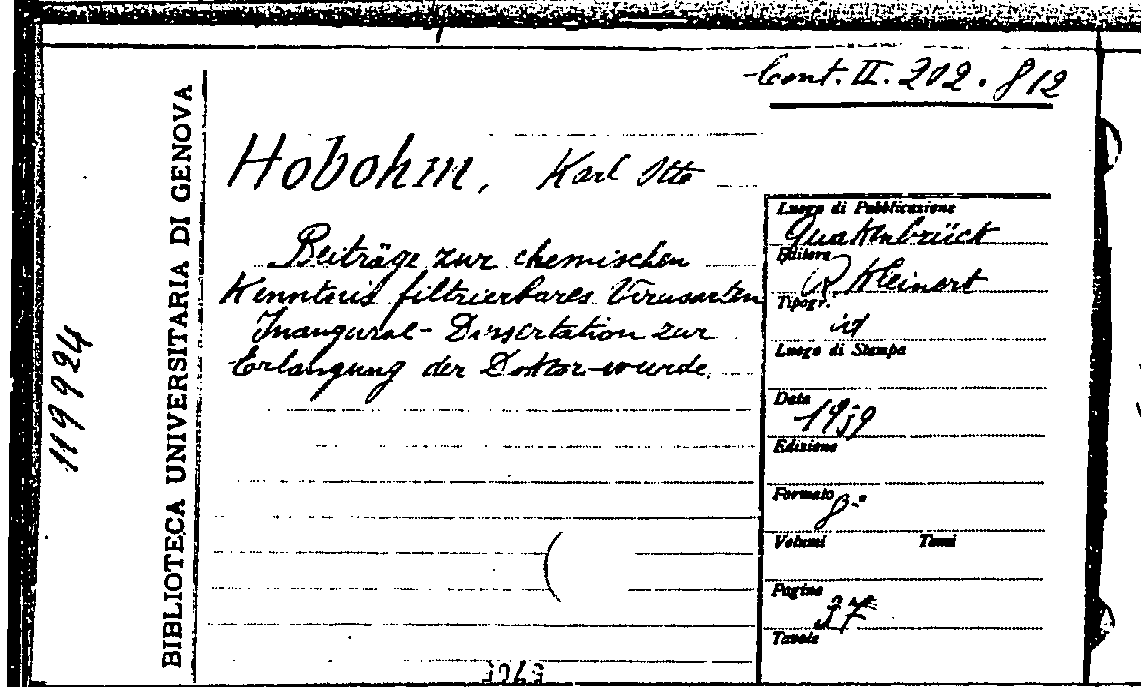 Cont. II. 202. 812
Hobohm, Karl Otto
Beiträge zur chemischen
Kenntnis filtrierbares Virusarten
Inaugural-Dissertation zur
Erlangung der Doktor-wurde.
Luogo di Pubblicazione
Quakenbrück
Editore
R Kleinert
Tipogr.
id
Luogo di Stampa
Data
1939
Edizione
Formato
8°
Volumi Tomi
Pagine
37
Tavole
BIBLIOTECA UNIVERSITARIA DI GENOVA
119924